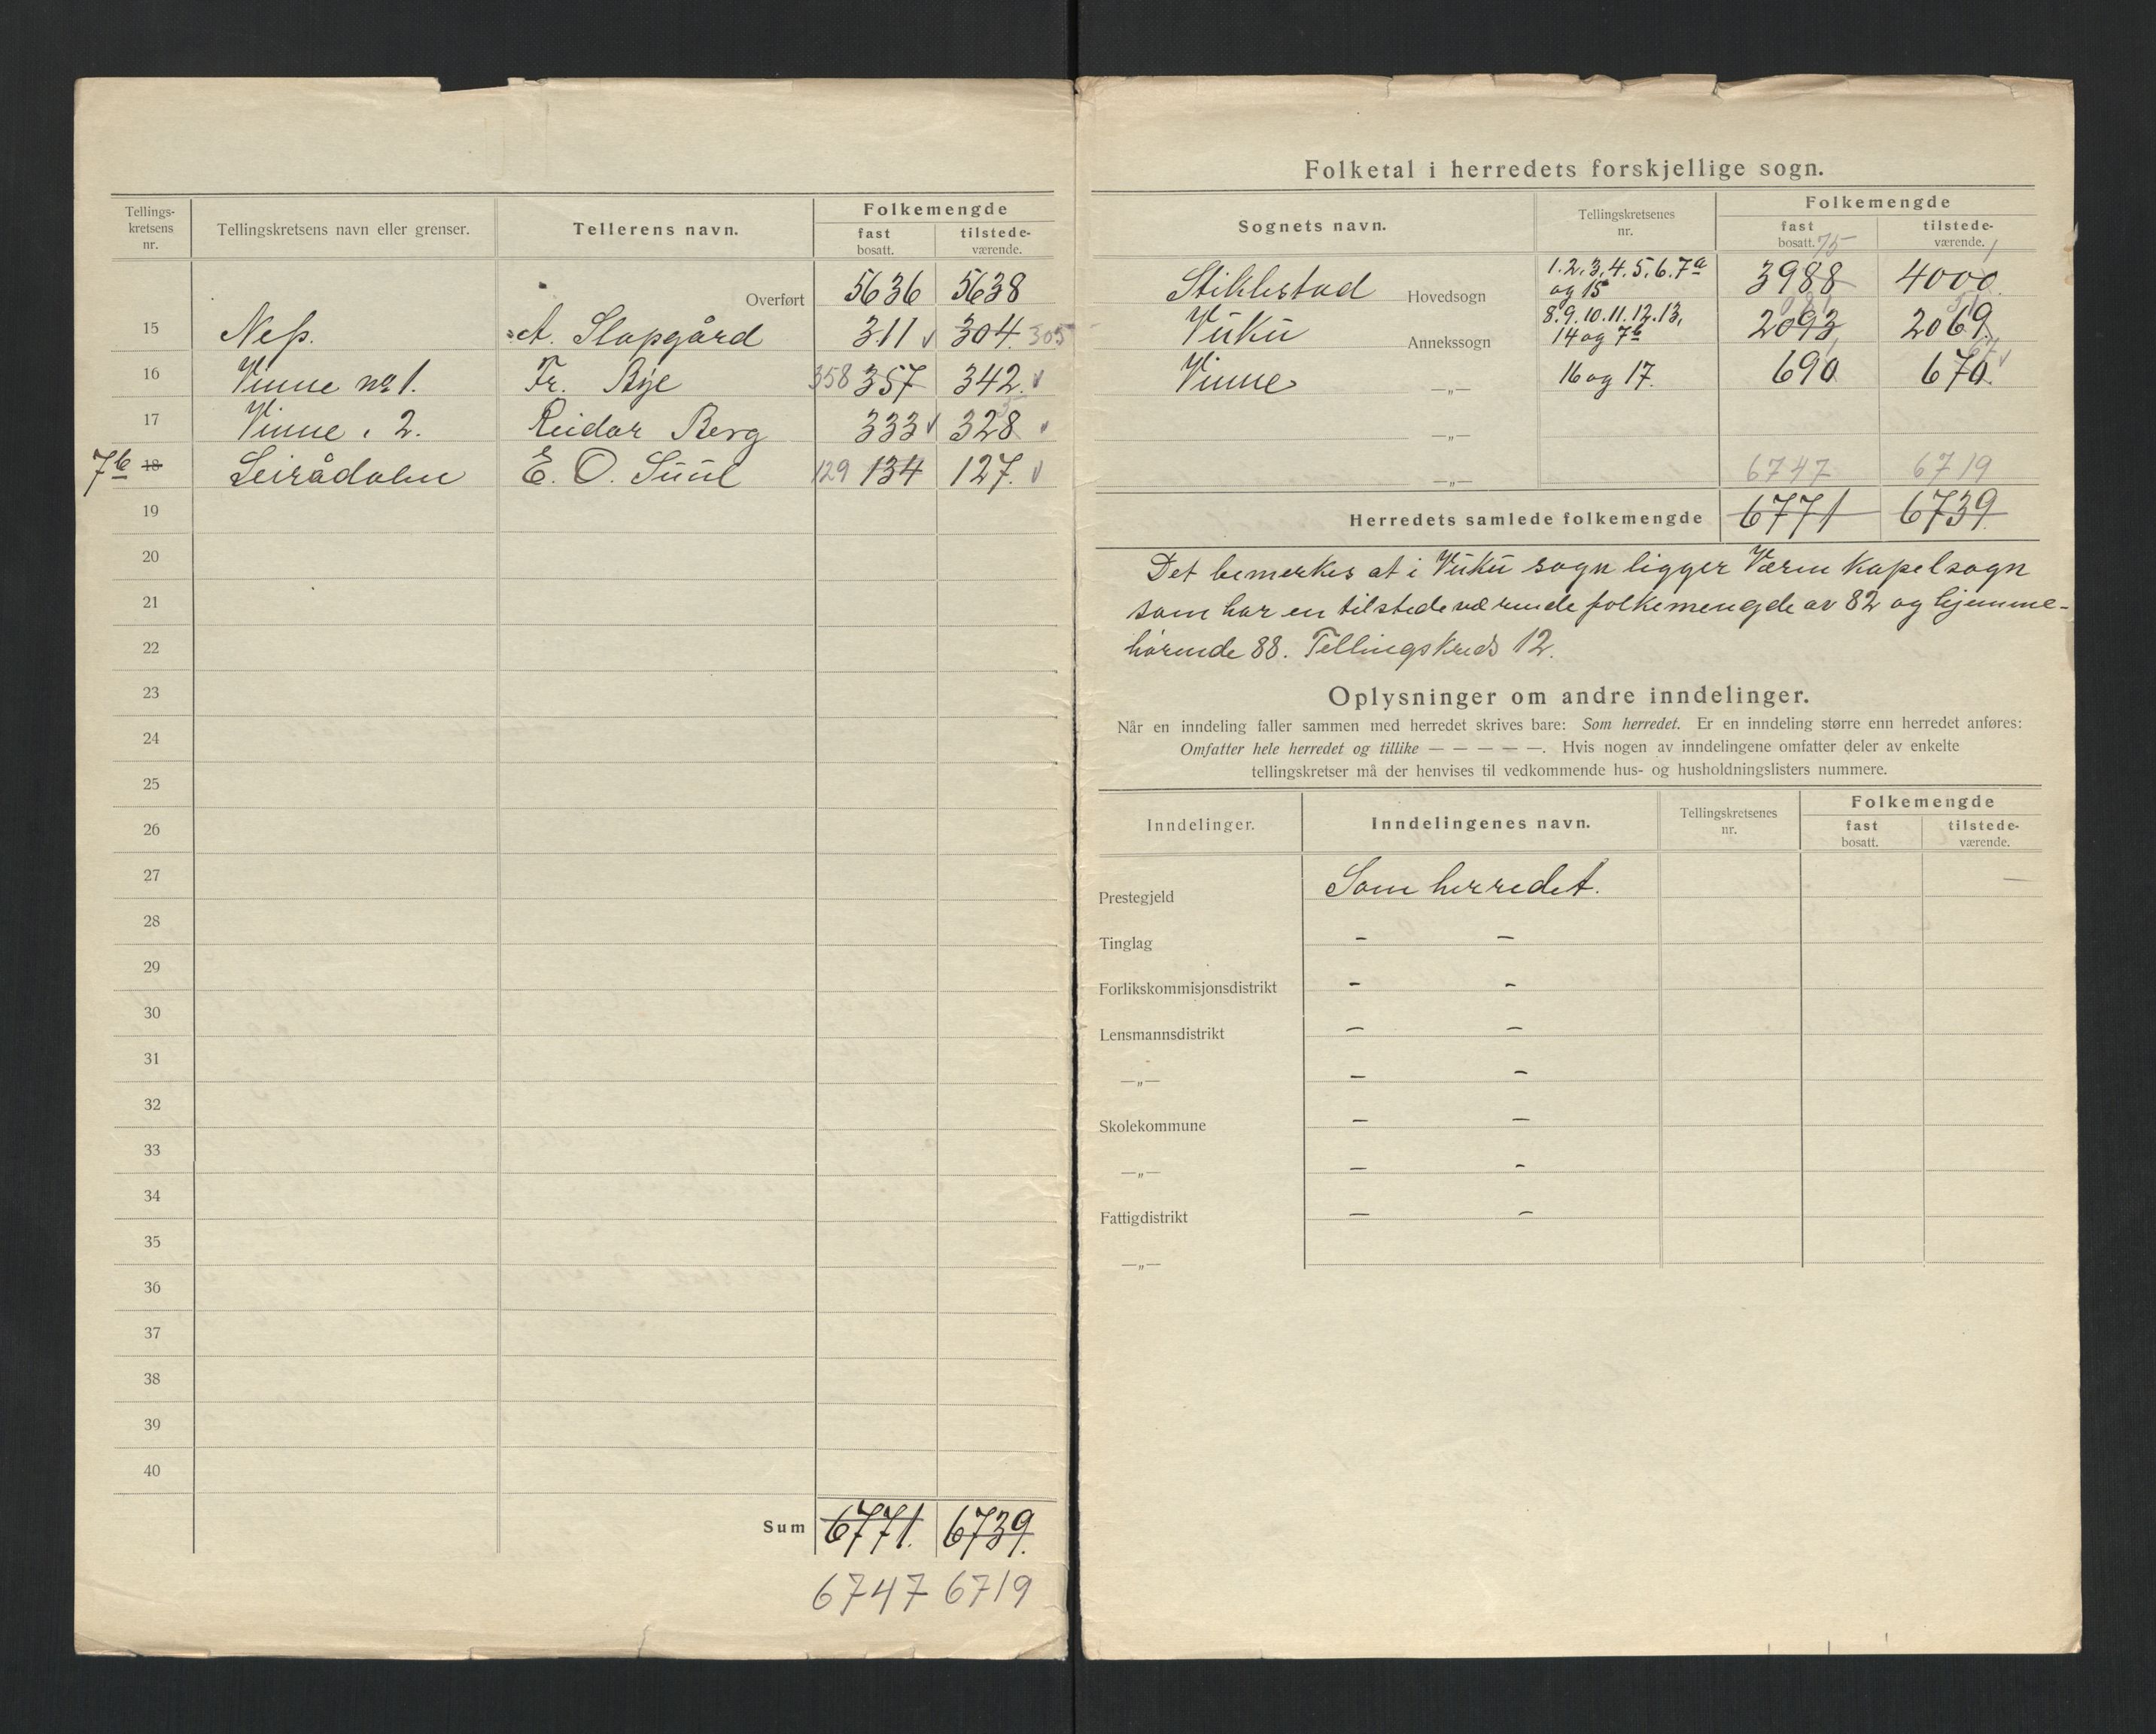 Tellings-
kretsens
nr.
Tellingskretsens navn eller grenser.
Tellerens navn.
Folkemengde
fast
bosatt.
tilstede-
værende.
Overført 5636 5638
15 Ness. A. Slapgård 311 304 305
16 Vinne no 1. Fr. Bye 358 357 342
17 Vinne " 2. Reidar Berg 333 328
7b 18 Leirådalen E. O. Suul 129 134 127.
19
20
21
22
23
24
25
26
27
28
29
30
31
32
33
34
35
36
37
38
39
40
Sum 6771. 6739.
6747 6719
Folketal i herredets forskjellige sogn.
Sognets navn.
Tellingskretsenes
nr.
Folkemengde
fast
bosatt. 75
tilstede-
værende. 1
Stiklestad Hovedsogn 1.2.3.4.5.6.7a og 15 3988 4000
Vuku Annekssogn 8.9.10.11.12.13, 14 og 7b 2093 2069
Vinne —„— 16 og 17. 690 670
—„—
—„— 6747 6719
Herredets samlede folkemengde 6771 6739
Det bemerkes at i Vuku sogn ligger Væren Kapelsogn
som har en tilstedeværende folkemengde av 82 og hjemme-
hørende 88. Tellingskreds 12.
Oplysninger om andre inndelinger.
Når en inndeling faller sammen med herredet skrives bare: Som herredet. Er en inndeling større enn herredet anføres:
Omfatter hele herredet og tillike — — — — —. Hvis nogen av inndelingene omfatter deler av enkelte
tellingskretser må der henvises til vedkommende hus- og husholdningslisters nummere.
Inndelinger.
Inndelingenes navn.
Tellingskretsenes
nr.
Folkemengde
fast
bosatt.
tilstede-
værende.
Prestegjeld Som herredet. —
Tinglag – –
Forlikskommisjonsdistrikt – –
Lensmannsdistrikt – –
—„— – –
Skolekommune – –
—„— – –
Fattigdistrikt – –
—„—